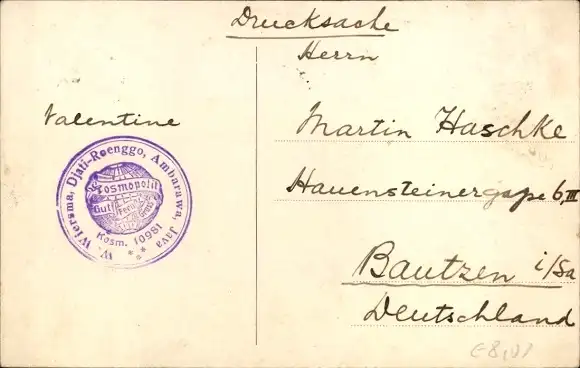 Drucksache
Herrn
Valentine
Martin Haschke
Hauensteinergasse 6, III
Bautzen i/Sa
Deutschland
W. Wiersma, Djati-Roenggo, Ambarawa, Java
Kosmopolit
Gut
Kosm. 10981